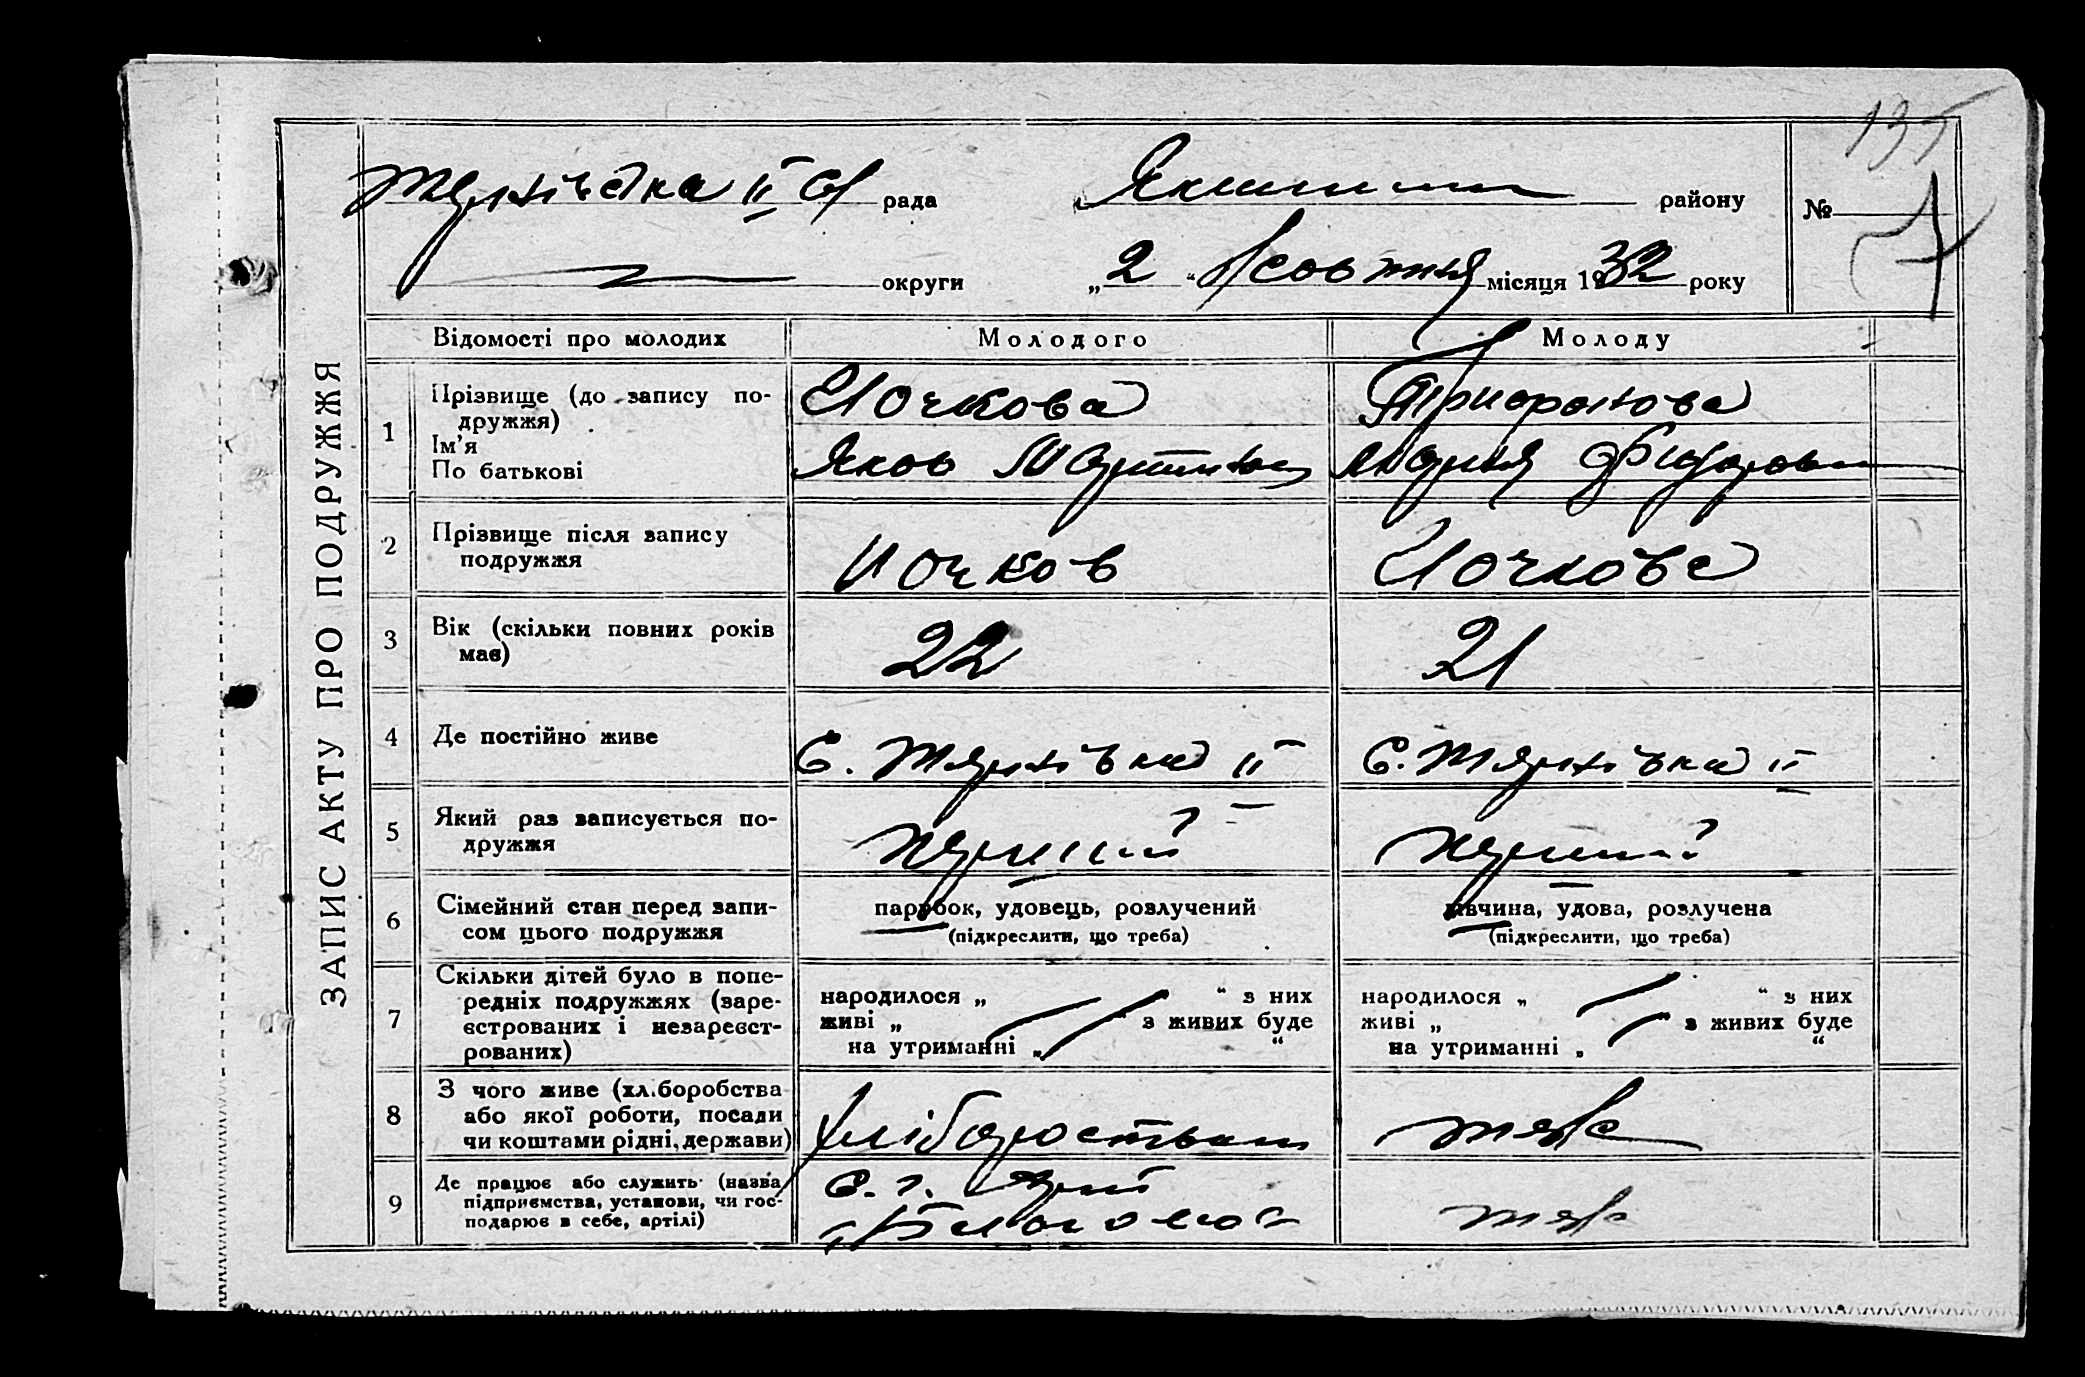 135
Терпіївка ІІ с/ рада
Якимів району
№ 7
округи
„ 2 “ Жовтня місяця 1932 року
ЗАПИС АКТУ ПРО ПОДРУЖЖЯ
Відомості про молодих
Молодого
Молоду
1
Прізвище (до запису по-
дружжя)
Ім’я
По батькові
Иочкова
Яков Мартинов
Марія Федоровна
2
Прізвище після запису
подружжя
Иочков
Иочкова
3
Вік (скільки повних років
має)
22
21
4
Де постійно живе
С. ІІ
С. ІІ
5
Який раз записується по-
дружжя
перший
перший
6
Сімейний стан перед запи-
сом цього подружжя
парубок, удовець, розлучений
(підкреслити, що треба)
дівчина, удова, розлучена
(підкреслити, що треба)
7
Скільки дітей було в попе-
редніх подружжях (заре-
єстрованих і незареєст-
рованих)
народилося „ “ з них
живі „ “ з живих буде
на утриманні „ “
народилося „ “ з них
живі „ “ з живих буде
на утриманні „ “
8
З чого живе (хліборобства
або якої роботи, посади
чи коштами рідні, держави)
теж
9
Де працює або служить (назва
підприємства, установи, чи гос-
подарює в себе, артілі)
с. г.
теж